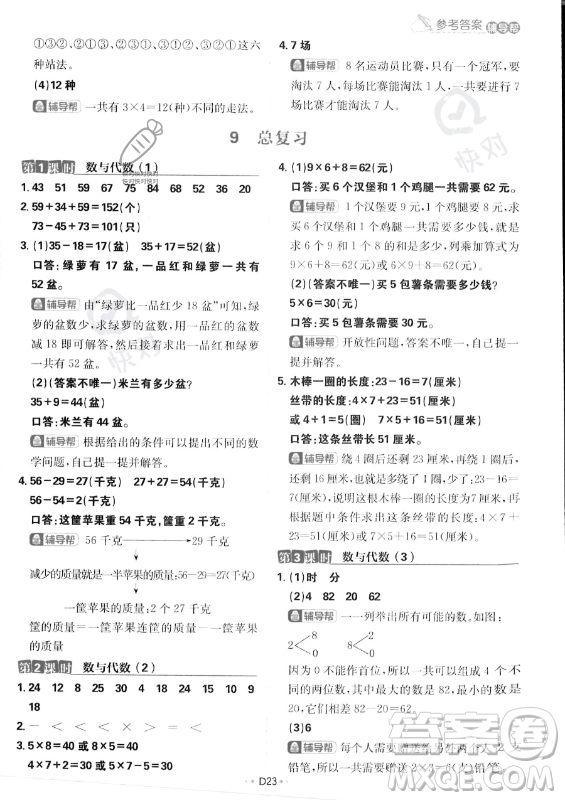 参考答案 辅导帮
①③② ②①③ ②③① ③①② ③②①这六
种站法。
(4)12 种
辅导帮 一共有 3×4=12(种)不同的走法。
4. 7 场
辅导帮 8 名运动员比赛，只有一个冠军，要
淘汰 7 人，每场比赛能淘汰 1 人，
9 总复习
第1课时 数与代数(1)
1. 43 51 59 67 75 84 76 68 36 20
2. 59+34+59=152(个)
73-45+73=101(只)
3. (1)35-18=17(盆) 35+17=52(盆)
口答：绿萝有 17 盆，一品红和绿萝一共有
52 盆。
辅导帮 由“绿萝比一品红少 18 盆”可求绿
萝的盆数少，求绿萝的盆数，用一品红的盆数
减 18 即可解答，然后接着求出一品红和绿萝
一共有 52 盆。
(2)(答案不唯一)米兰有多少盆?
口答：米兰有 44 盆。
辅导帮 根据给出的条件可以提出不同的数
学问题。
4. 56-29=27(千克) 27+27=54(千克)
56-54=2(千克)
口答：这筐苹果重 54 千克，筐重 2 千克。
辅导帮 56 千克 29 千克
减少的质量就是一半苹果的质量 27 千克
一筐苹果的质量=2 个 27 千克
筐的质量=一筐苹果连筐的质量-一筐苹果
的质量
第2课时 数与代数(2)
1. 24 12 8 30 25 15 24 18 10 9
18
2. - < < < × > <
3. 5×8=40 或 8×5=40
4×7+2=30 或 7×4+2=30
4. (1)9×6+8=62(元)
口答：买 6 个汉堡和 1 个鸡腿一共需要 62 元。
辅导帮 1 个汉堡要 9 元，1 个鸡腿要 8 元，求
买 6 个汉堡和 1 个鸡腿一共需要多少钱，就
是求 6 个 9 与 8 的和是多少，列乘加算式为
9×6+8=62(元)。
(2)(答案不唯一)买 5 包薯条需要多少钱?
5×6=30(元)
口答：买 5 包薯条需要 30 元。
辅导帮 开放性问题，答案不唯一。
5. 木棒一圈的长度：23-16=7(厘米)
丝带的长度：4×7+23=51(厘米)
或 4+1=5(圈) 7×5+16=51(厘米)
口答：这条丝带的长度是 51 厘米。
辅导帮 绕 4 圈后还剩 23 厘米，绕 5 圈后还
剩 16 厘米，多绕了 1 圈，少了 23-16=7(厘
米)，说明木棒一圈的长度是 7 厘米，可以
求出这条丝带的长度为 4×7+23=51(厘米)
或 7×5+16=51(厘米)。
第3课时 数与代数(3)
1. (1)时 分
(2)4 82 20 62
辅导帮 一一列举出所有可能的数。
2 8 0
8 2 0
因为 0 不能作首位，所以一共可以组成 4 个不
同的两位数，其中最大的数是 82，最小的数是
20，它们相差 82-20=62。
(3)6
D23
答案圈
快对